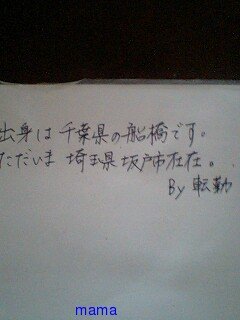 出身は千葉県の船橋です。
ただいま 埼玉県坂戸市在在。
By 転勤
mama